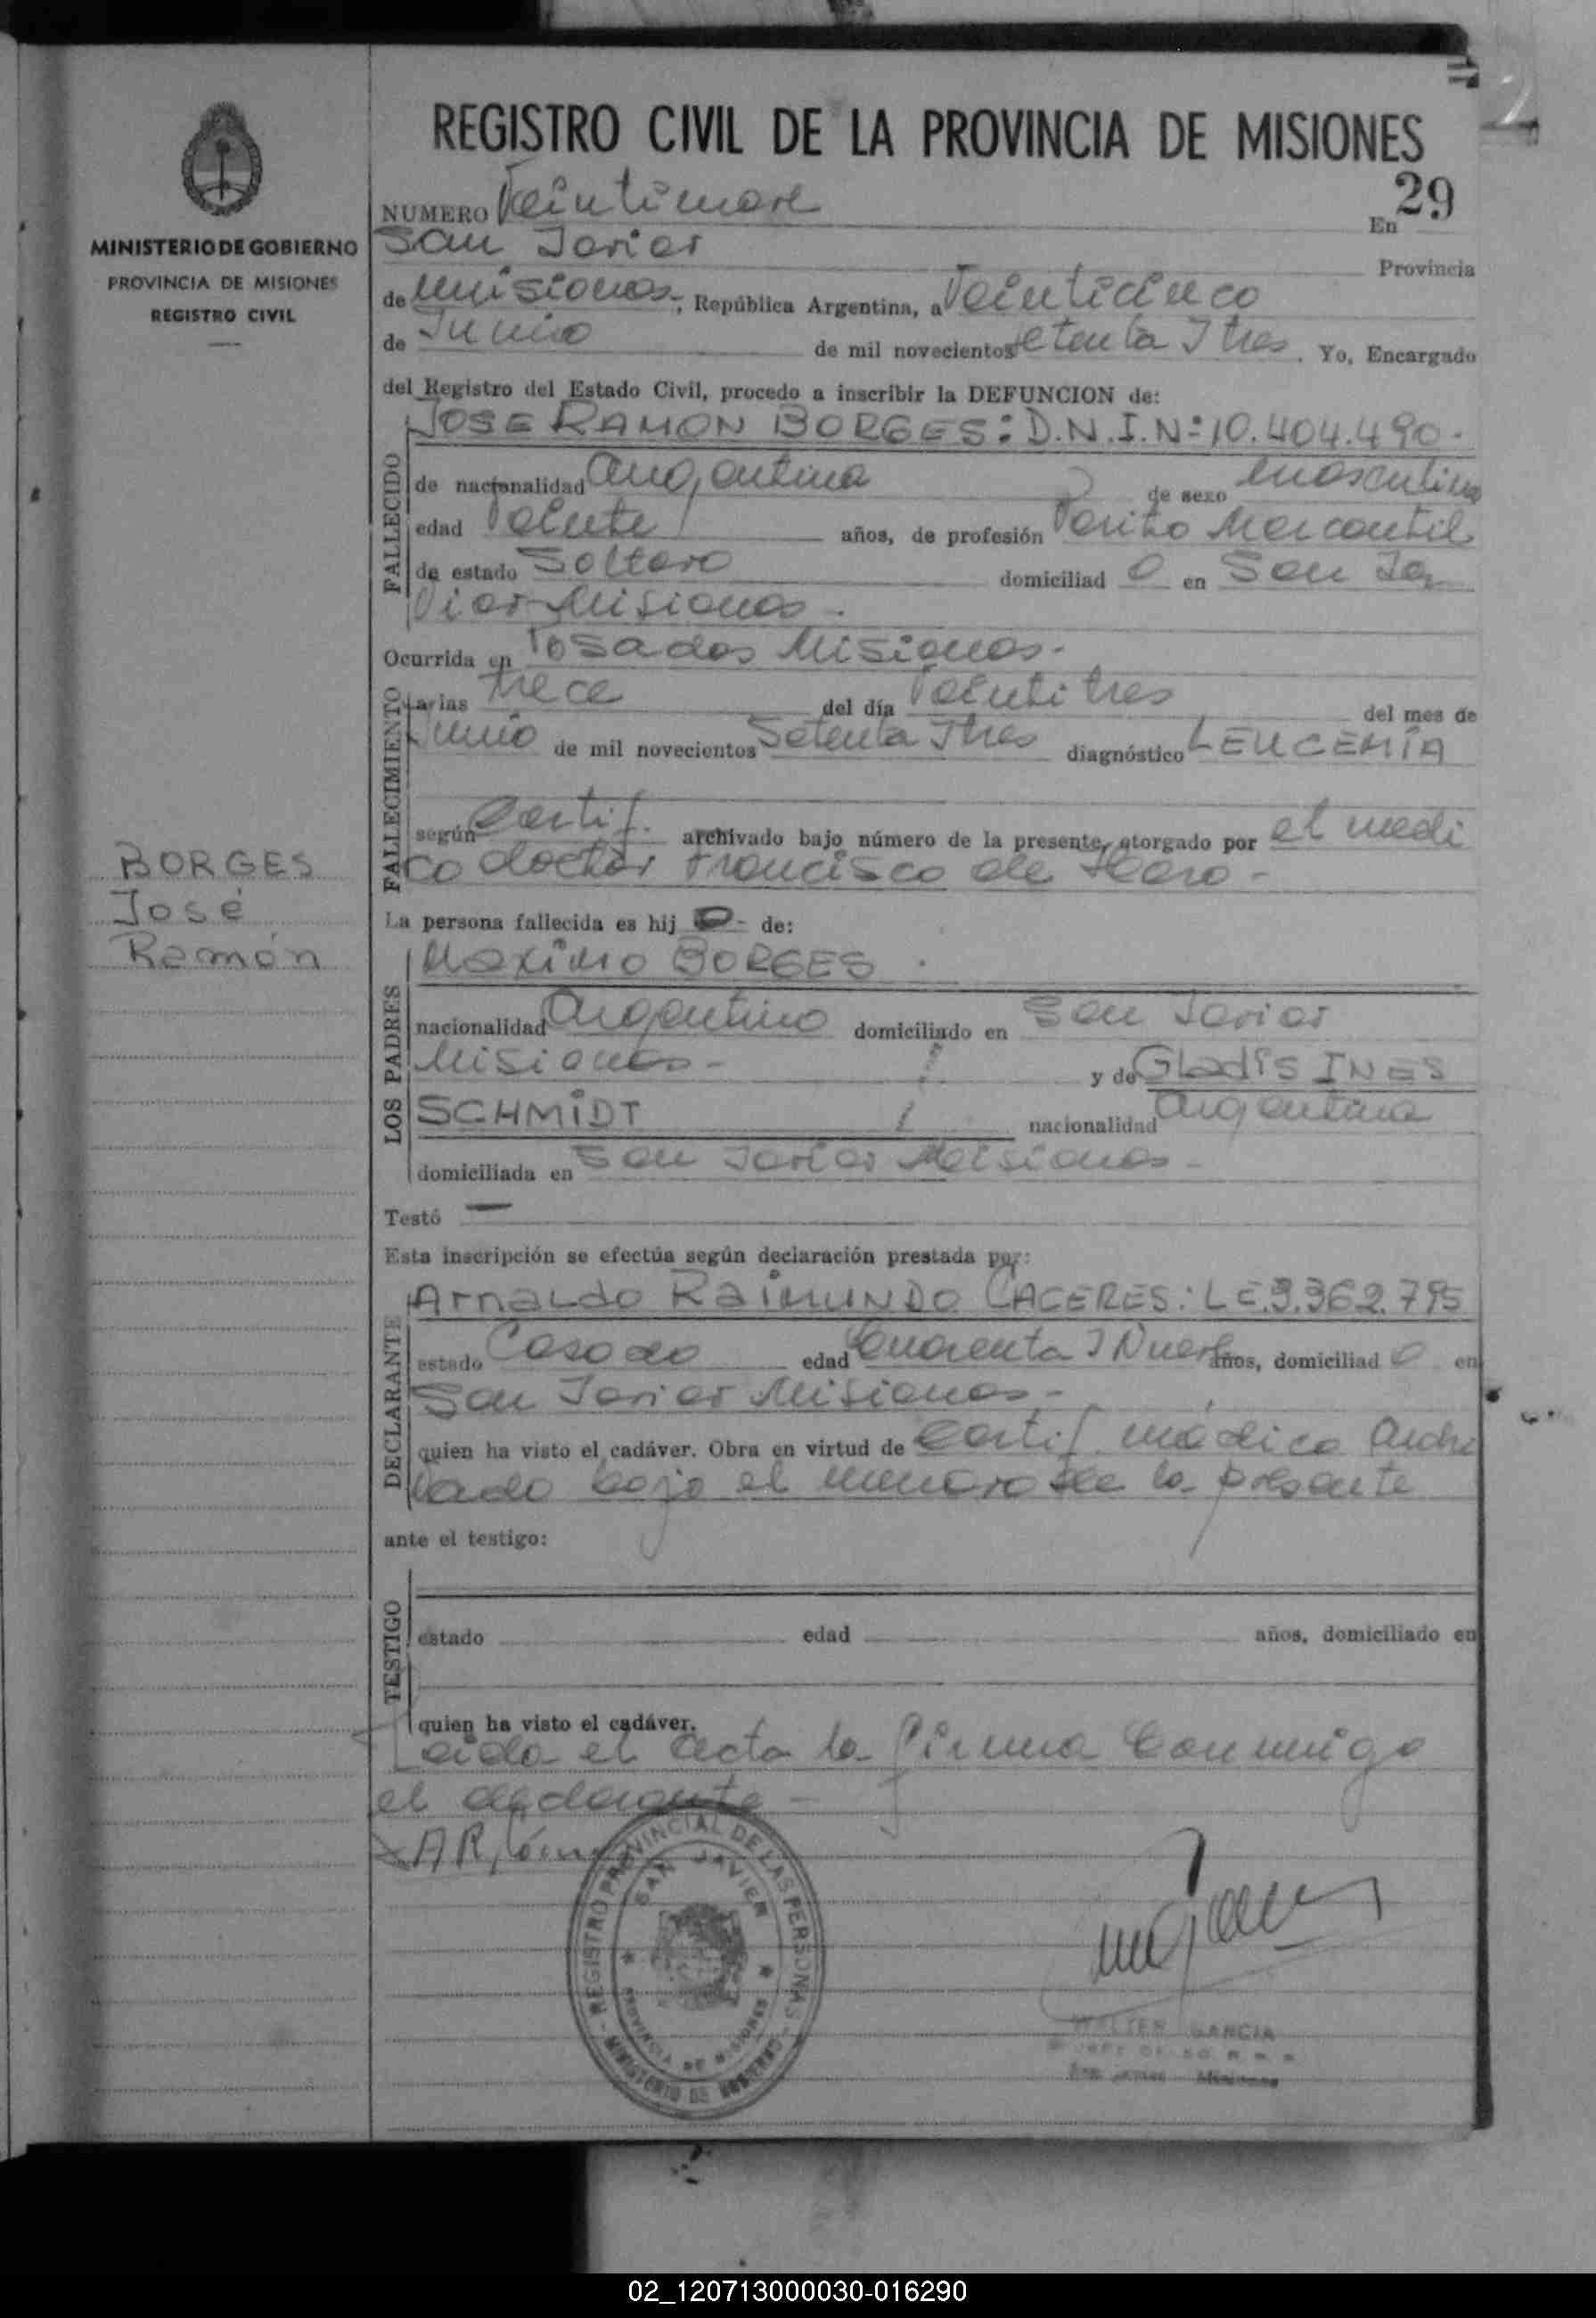 REGISTRO CIVIL DE LA PROVINCIA DE MISIONES
MINISTERIO DE GOBIERNO
PROVINCIA DE MISIONES
REGISTRO CIVIL
NUMERO Veintinueve 29 En
San Javier Provincia
de Misiones, República Argentina, a Veinticinco
de Junio de mil novecientos setenta y tres. Yo, Encargado
del Registro del Estado Civil, procedo a inscribir la DEFUNCION de:
FALLECIDO
JOSE RAMON BORGES: D.N.I.Nº 10.404.490.
de nacionalidad argentina de sexo masculino
edad Veinte años, de profesión Perito Mercantil
de estado Soltero domiciliad o en San Ja
vier Misiones.
Ocurrida en Posadas Misiones.
FALLECIMIENTO
a las trece del día Veintitres del mes de
Junio de mil novecientos Setenta y tres diagnóstico LEUCEMÍA
según Certif. archivado bajo número de la presente, otorgado por el medi
co doctor Francisco de Haro -
La persona fallecida es hij o de:
LOS PADRES
Maximo BORGES
nacionalidad Argentino domiciliado en San Javier
Misiones - y de GLadis INES
SCHMIDT nacionalidad argentina
domiciliada en San Javier Misiones -
Testó —
Esta inscripción se efectúa según declaración prestada por:
DECLARANTE
Arnaldo Raimundo CACERES: L E. 3.362.795
estado Casado edad Cuarenta y Nueve años, domiciliad o en
San Javier Misiones -
quien ha visto el cadáver. Obra en virtud de Certif. médico archi
vado bajo el numero de la presente
ante el testigo:
TESTIGO
estado edad años, domiciliado en
quien ha visto el cadáver.
Leida el acta la firma conmigo
el declarante -
BORGES
José
Ramón
REGISTRO PROVINCIAL DE LAS PERSONAS - MINISTERIO DE GOBIERNO -
SAN JAVIER
PROVINCIA DE MISIONES
WALTER GARCIA
Misiones
02_120713000030-016290